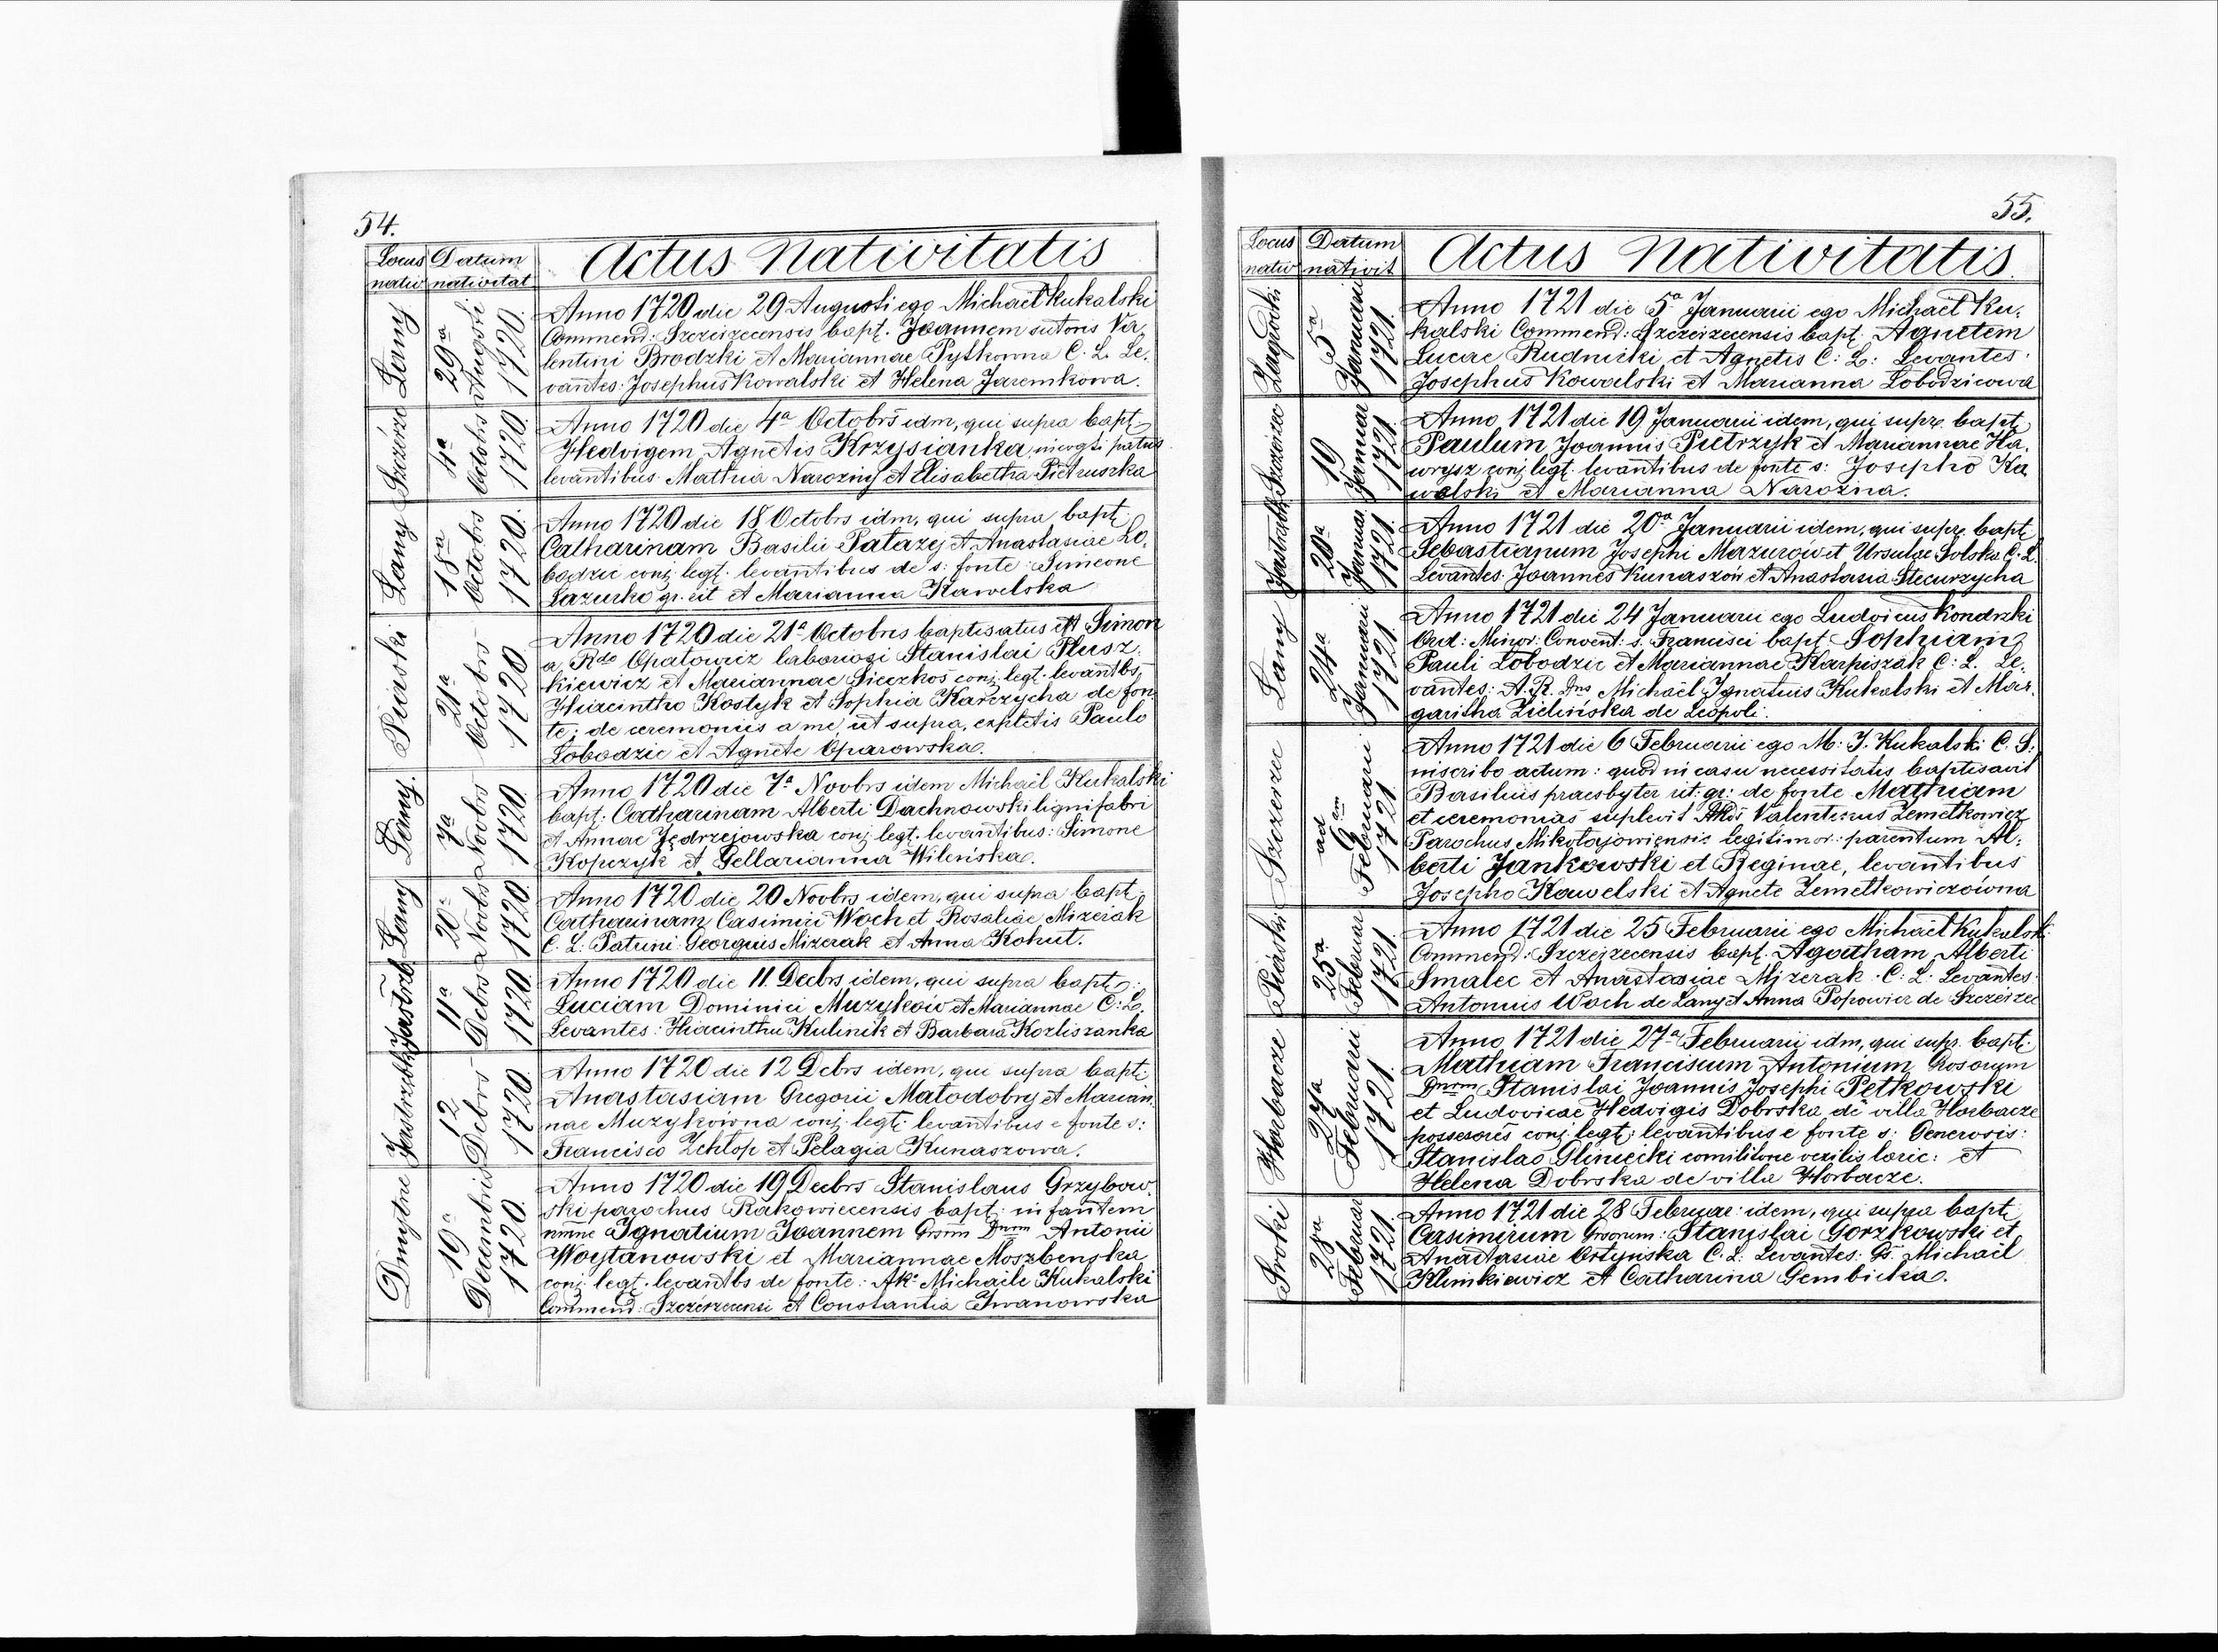 54.
Locus nativ
Datum nativitat
Actus Nativitatis
Łany
29a Augusti 1720.
Anno 1720 die 29 Augusti ego Michaël Kukalski
Commend: Szczeizecensis bapt. Joannem sutoris Va,
lentini Brodzki et Mariannae Pytkowna C. L. Le,
vantes: Josephus Kowalski et Helena Jaremkowa.
4a Octobrs 1720.
Anno 1720 die 4a Octobrs idm, qui supra bapt.
Hedvigem, Agnetis Krzysianka, patris
levantibus: Mathia Narozny et Elisabetha Pietruszka
Łany
18a Octobrs 1720.
Anno 1720 die 18 Octobrs idm, qui supra bapt.
Catharinam Basilii Patazy et Anastasiae Ło,
bodzic conj. legt. levantibus de s: fonte: Simeone
Lazurko gr. rit et Marianna Kawelska
Piaski
21a Octobrs 1720
Anno 1720 die 21a Octobris baptisatus est Simon
a Rdo Opatowicz laboriosi Stanislai Plusz,
kiewicz et Mariannae Sieczkos conj. legt. levantbs,
Hiacintho Kostyk et Sophia Karzycha de fon,
te; de ceremoniis a me, ut supra, expletis Paulo
Łobodzic et Agnete Oparowska.
Łany.
7a Novbrs 1720
Anno 1720 die 7a Novbrs idem Michaël Kukalski
bapt. Catharinam Alberti Dachnowski lignifabri
et Annae Jędrzejowska conj. legt. levantibus: Simone
Kopczyk et Gellarianna Wileńska.
Łany
20a Novbrs 1720
Anno 1720 die 20 Novbrs idem, qui supra bapt.
Catharinam Casimiri Woch et Rosaliae Mizerak
C. L. Patrini Georgius Mizerak et Anna Kohut.
11a Decbrs 1720
Anno 1720 die 11. Decbrs idem, qui supra bapt.
Luciam Dominici Muzyków et Mariannae C: L.
Levantes: Hiacinthu Kulinik et Barbara Kozliszanka
12 Debrs 1720
Anno 1720 die 12 Debrs idem, qui supra bapt.
Anastasiam Gregorii Małodobry et Marian,
nae Muzykówna conj. legt. levantibus e fonte s:
Francisco Zchlop et Pelagia Kunaszowa.
Dmytrie
19a Decembris 1720.
Anno 1720 die 19 Decbrs Stanislaus Grzybow,
ski parochus Rakowiecensis bapt. infantem
nmne Ignatium Joannem Dnrm Antonii
Woytanowski et Mariannae Moszbenska
conj. legt. levantbs de fonte: Michaile Kukalski
Commend: et Constantia Iwanowska
55.
Locus nativ
Datum nativit
Actus Nativitatis.
5a Januarii 1721
Anno 1721 die 5a Januarii ego Michaël Ku,
kalski Commend: Szczeizecensis bapt. Agnetem
Lucae Rudnicki et Agnetis C: L: Levantes:
Josephus Kowalski et Marianna Łobodzicowa
19 Januar 1721
Anno 1721 die 19 Januarii idem, qui supr. bapt.
Paulum Joannis Pietrzyk et Mariannae Ha,
wrysz conj legt. levantibus de fonte s: Josepho Ka
walski et Marianna Narożna.
20a Januar 1721
Anno 1721 die 20a Januarii idem, qui supr. bapt.
Sebastianum Josephi Mazurów et Ursulae Solska C. L.
Levantes: Joannes Kunaszów et Anastasia Stecurzycha
Łany
24a Januarii 1721
Anno 1721 die 24 Januarii ego Ludvicus Kondrzki
Ord: Minor: Convent: s. Francisci bapt. Sophiam
Pauli Łobodzic et Mariannae Karpiszak C: L. Le,
vantes: A. R. Dns Michaël Ignatius Kukalski et Mar,
garitha Zielińska de Leopoli.
Szczerzec
ad 6am Februarii 1721
Anno 1721 die 6 Februarii ego M: J. Kukalski C. S.
inscribo actum: quod in casu necessitatis baptisavit
Basilius praesbyter rit: gr: de fonte Mathiam
et ceremonias suplevit Valentinus Zemelkowicz
Parochus Mikołajowiensis legitimor: parentum Al,
berti Jankowski et Reginae, levantibus
Josepho Kawelski et Agnete Zemelkowiczówna
Piaski
25a Februar 1721
Anno 1721 die 25 Februarii ego Michaël Kukalski
Commend: Szczeizecensis bapt. Agatham Alberti
Smalec et Anastasiae Mizerak C: L: Levantes:
Antonius Woch de Łany et Anna Popowicz de Szczeizec
Horbacze
27a Februarii 1721
Anno 1721 die 27a Februarii idm, qui supr. bapt.
Mathiam Franciscum Antonium Grosorum
Dnrm Stanislai Joannis Josephi Petkowski
et Ludovicae Hedvigis Dobrska de villa Horbacze
possesores conj. legt. levantibus e fonte s: Generosis:
Stanislao Gliniecki comilitone vexilis loric: et
Helena Dobrska de villa Horbacze.
Sroki
28a Februar 1721
Anno 1721 die 28 Februar: idem, qui supra bapt.
Casimirum Grosorum: Stanislai Gorzkowski et
Anastasiae Ortyńska C. L: Levantes: Gr. Michaël
Klimkiewicz et Catharina Gembicka.